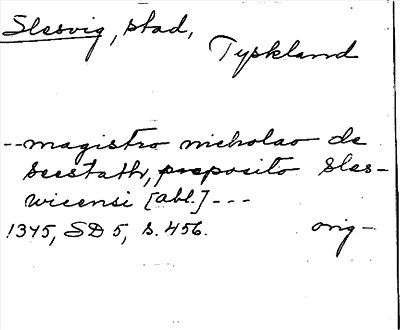 Slesvig, stad,
Tyskland
--magistro nicholao de
seestath, preposito Sles-
wicensi [abl.] ---
1345, SD 5, s. 456. orig-